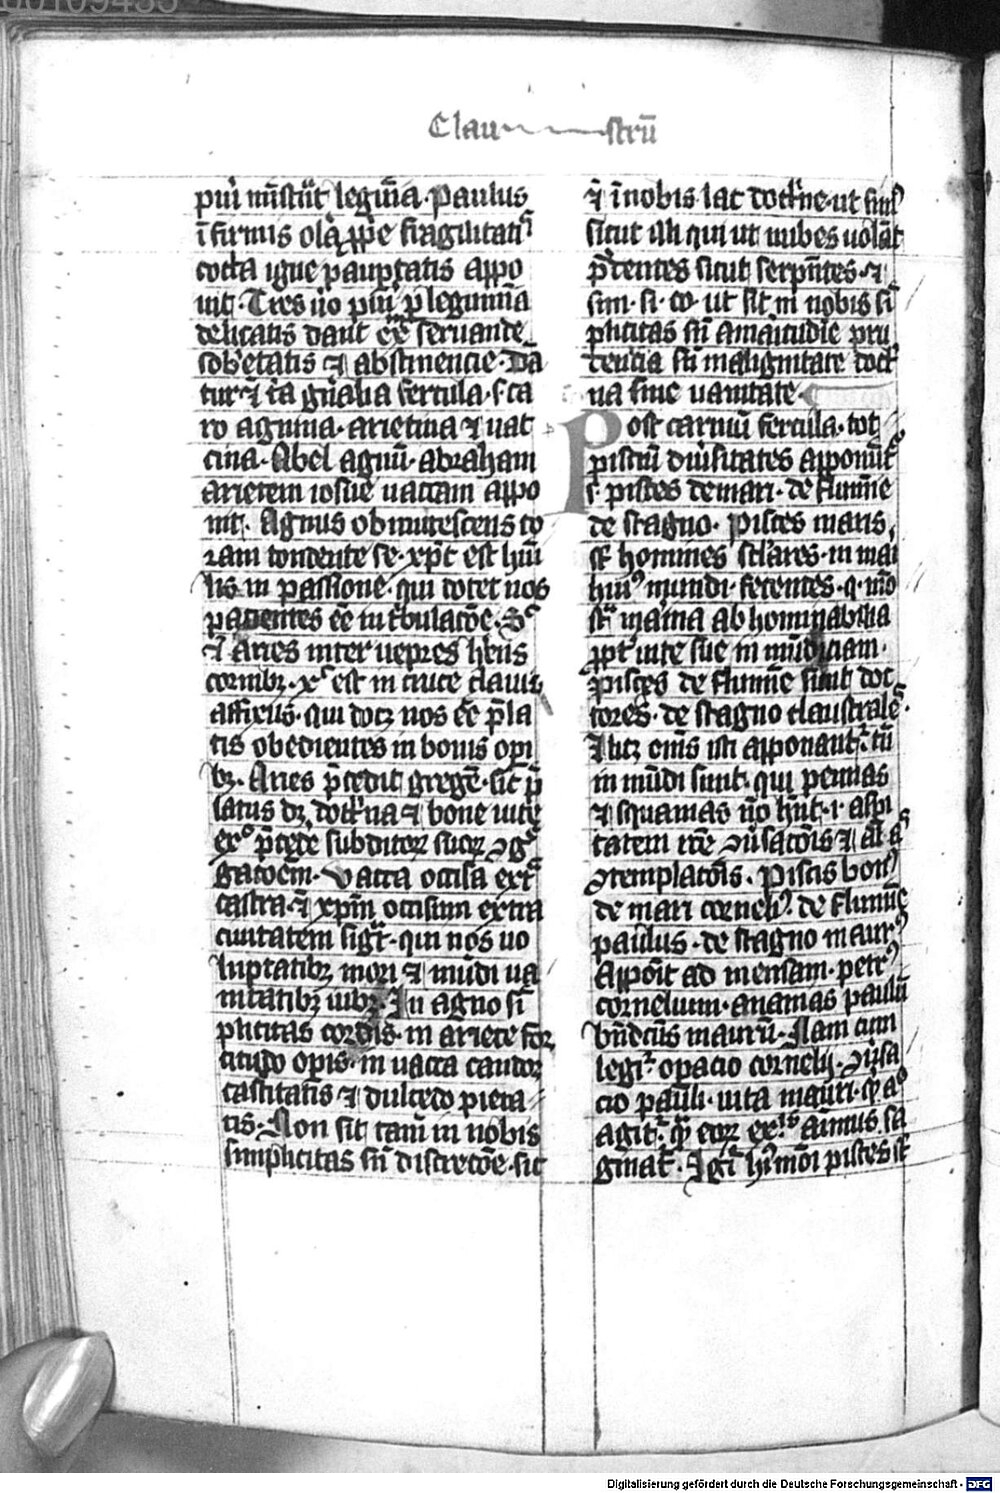 Clau strū
puū mīstrāt legūīa. Paulus
ī firmis olā ꝓpe fragilitatis
cocta igne paupertatis appo
uit. Tres uo pūi ꝓ legumīa
delicatis dant exē seruande
sobrietatis ⁊ abstinencie. Da
tur ⁊ ī gn̄alia fercula. s. ca
ro agnina. arietina ⁊ uac
cina. Abel agnū. abraham
arietem iosue uaccam appo
nit. Agnus obmutescens co
ram tondente se. xp̄c est hūi
lis in passione. qui docet nos
pacientes eē in tribulacōe.
⁊ Aries inter uepres hn̄s
cornibꝫ. xp̄s est in cruce clauis
affixus. qui docꝫ nos eē p̄la
tis obedientes in bonis opi
bꝫ. Aries p̄cedit gregē. sic p̄
latus dꝫ doctrīna ⁊ bone uite
exō p̄cede subditoꝝ suoꝝ ꝯg̃
gacōem. Vacca occisa extᵃ
castra. ⁊ xpm̄ occisum extra
ciuitatem sigt̄. qui nos uo
luptatibꝫ mori ⁊ mūdi ua
nitatibꝫ iubꝫ. In agno sī
plicitas cordis. in ariete for
titudo opis. in uacca candor
castitatis ⁊ dulcedo pieta
tis. Non sit tam̄ in nobis
simplicitas sn̄ discrecōe. sic
⁊ ī nobis lac doctⁱne. ut sim᷒
sicut illi qui ut nubes uolāt
p̄dentes sicut serpn̄tes. ⁊
sim. si. co. ut sit in nobis sī
plicitas sn̄ amaritudīe pru
dencia sn̄ malignitate doctⁱ
na sine uanitate.
Post carniū fercula. tot
pisciū diuˢitates apponūt᷑
s. pisces de mari. de flumīe
de stagno. Pisces maris,
st̄ homines sclāres. in mai
hui᷒ mundi. fetentes. q. mō
st̄ maīna abhominabilia
ꝓpt̄ uite sue in mūdiciam.
Pisces de flumīe sunt doc
tores. de stagno claustrales.
Licꝫ om̄s isti apponant᷑. tn̄
in mūdi sunt. qui pennas
⁊ squamas nō hn̄t. i. aspi
tatem
ꝯtemplacōis. Piscis bon᷒
de mari corneli᷒. de flumīe
paulus. de stagno maur᷒
Appoīt ad mensam. petr᷒
cornelium. ananias paulū
bn̄dcūs maurū. Nam cum
legit᷑ opacio cornelij. ꝯūsa
cio pauli. uita mauri. qᵈ aō
agit᷑. qᵈ eoꝝ exˡˢ aīmus sa
ginat᷑. Igit̄ hᵒmōi pisces st̄
Digitalisierung gefördert durch die Deutsche Forschungsgemeinschaft - DFG